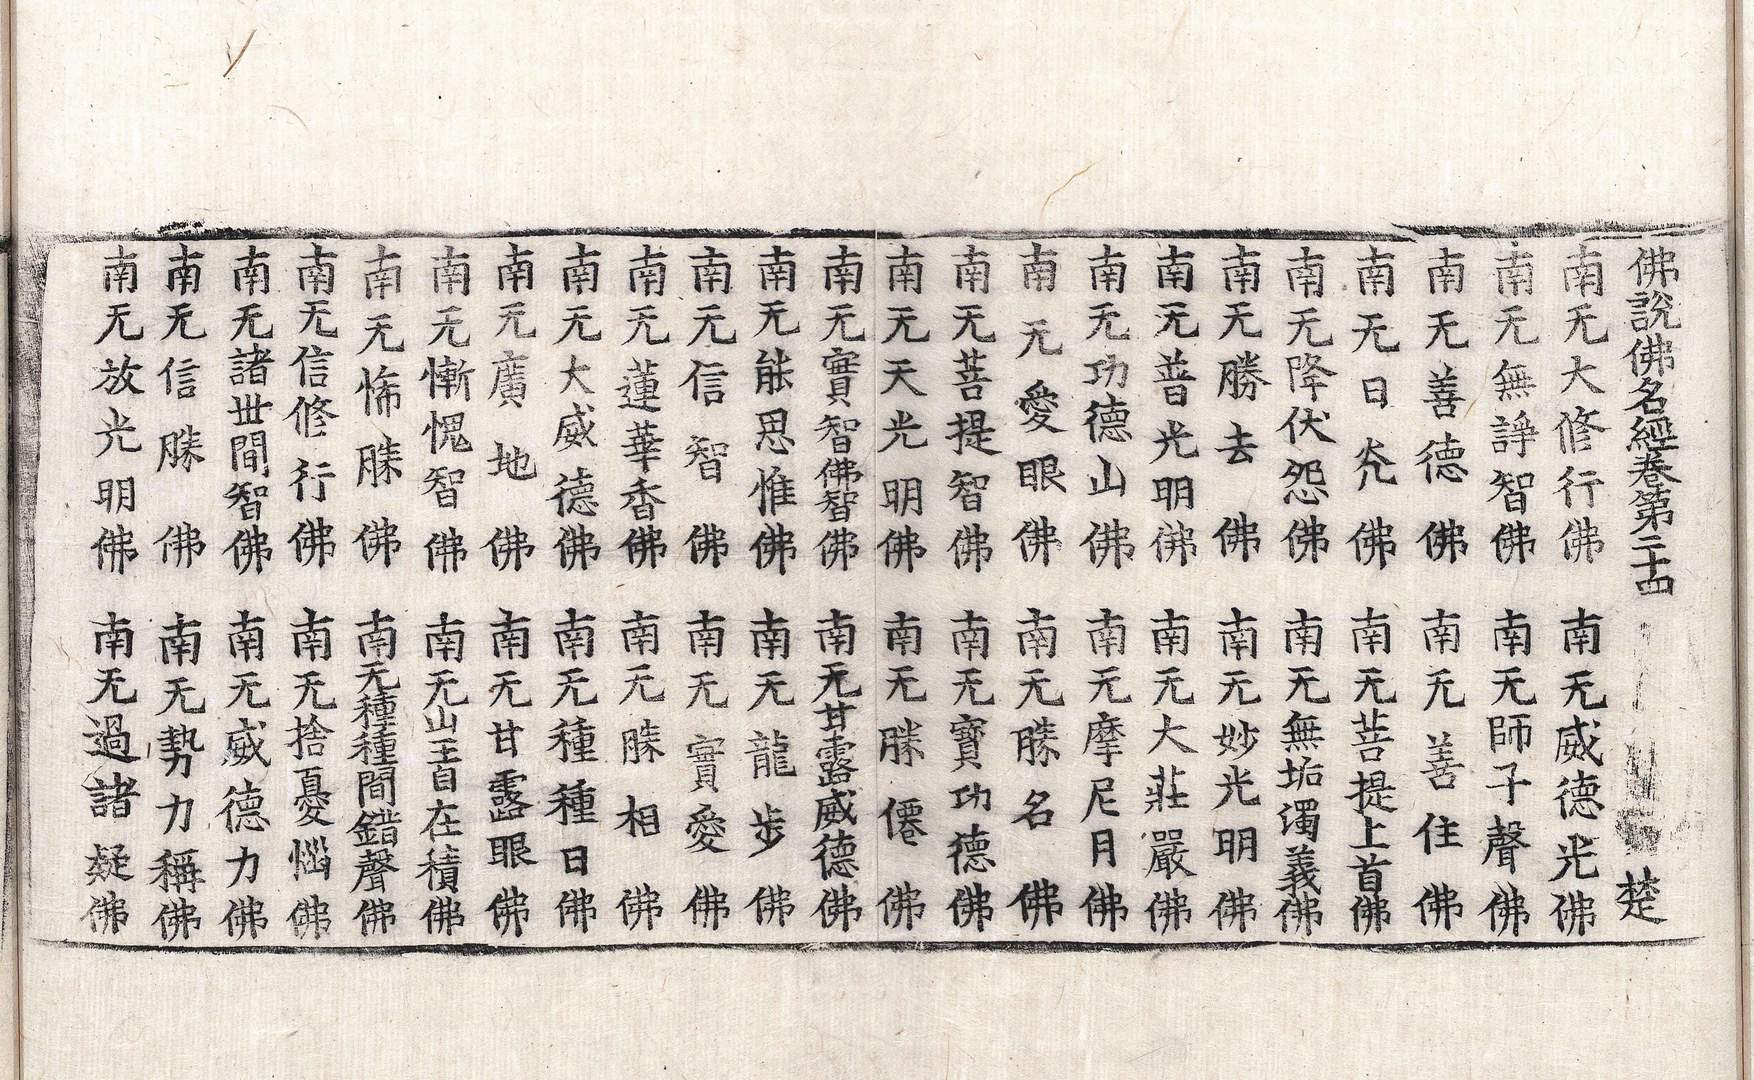 佛說佛名經卷第二十四 楚
南无大修行佛 南无威德光佛
南无無諍智佛 南无師子聲佛
南无善德佛 南无善住佛
南无日光佛 南无菩提上首佛
南无降伏怨佛 南无無垢濁義佛
南无勝去佛 南无妙光明佛
南无普光明佛 南无大莊嚴佛
南无功德山佛 南无摩尼月佛
南无愛眼佛 南无勝名佛
南无菩提智佛 南无寶功德佛
南无天光明佛 南无勝僊佛
南无實智佛智佛 南无甘露威德佛
南无能思惟佛 南无龍步佛
南无信智佛 南无實愛佛
南无蓮華香佛 南无勝相佛
南无大威德佛 南无種種日佛
南无廣地佛 南无甘露眼佛
南无慚愧智佛 南无山王自在積佛
南无悕勝佛 南无種種間錯聲佛
南无信修行佛 南无捨憂惱佛
南无諸世間智佛 南无威德力佛
南无信勝佛 南无勢力稱佛
南无放光明佛 南无過諸疑佛